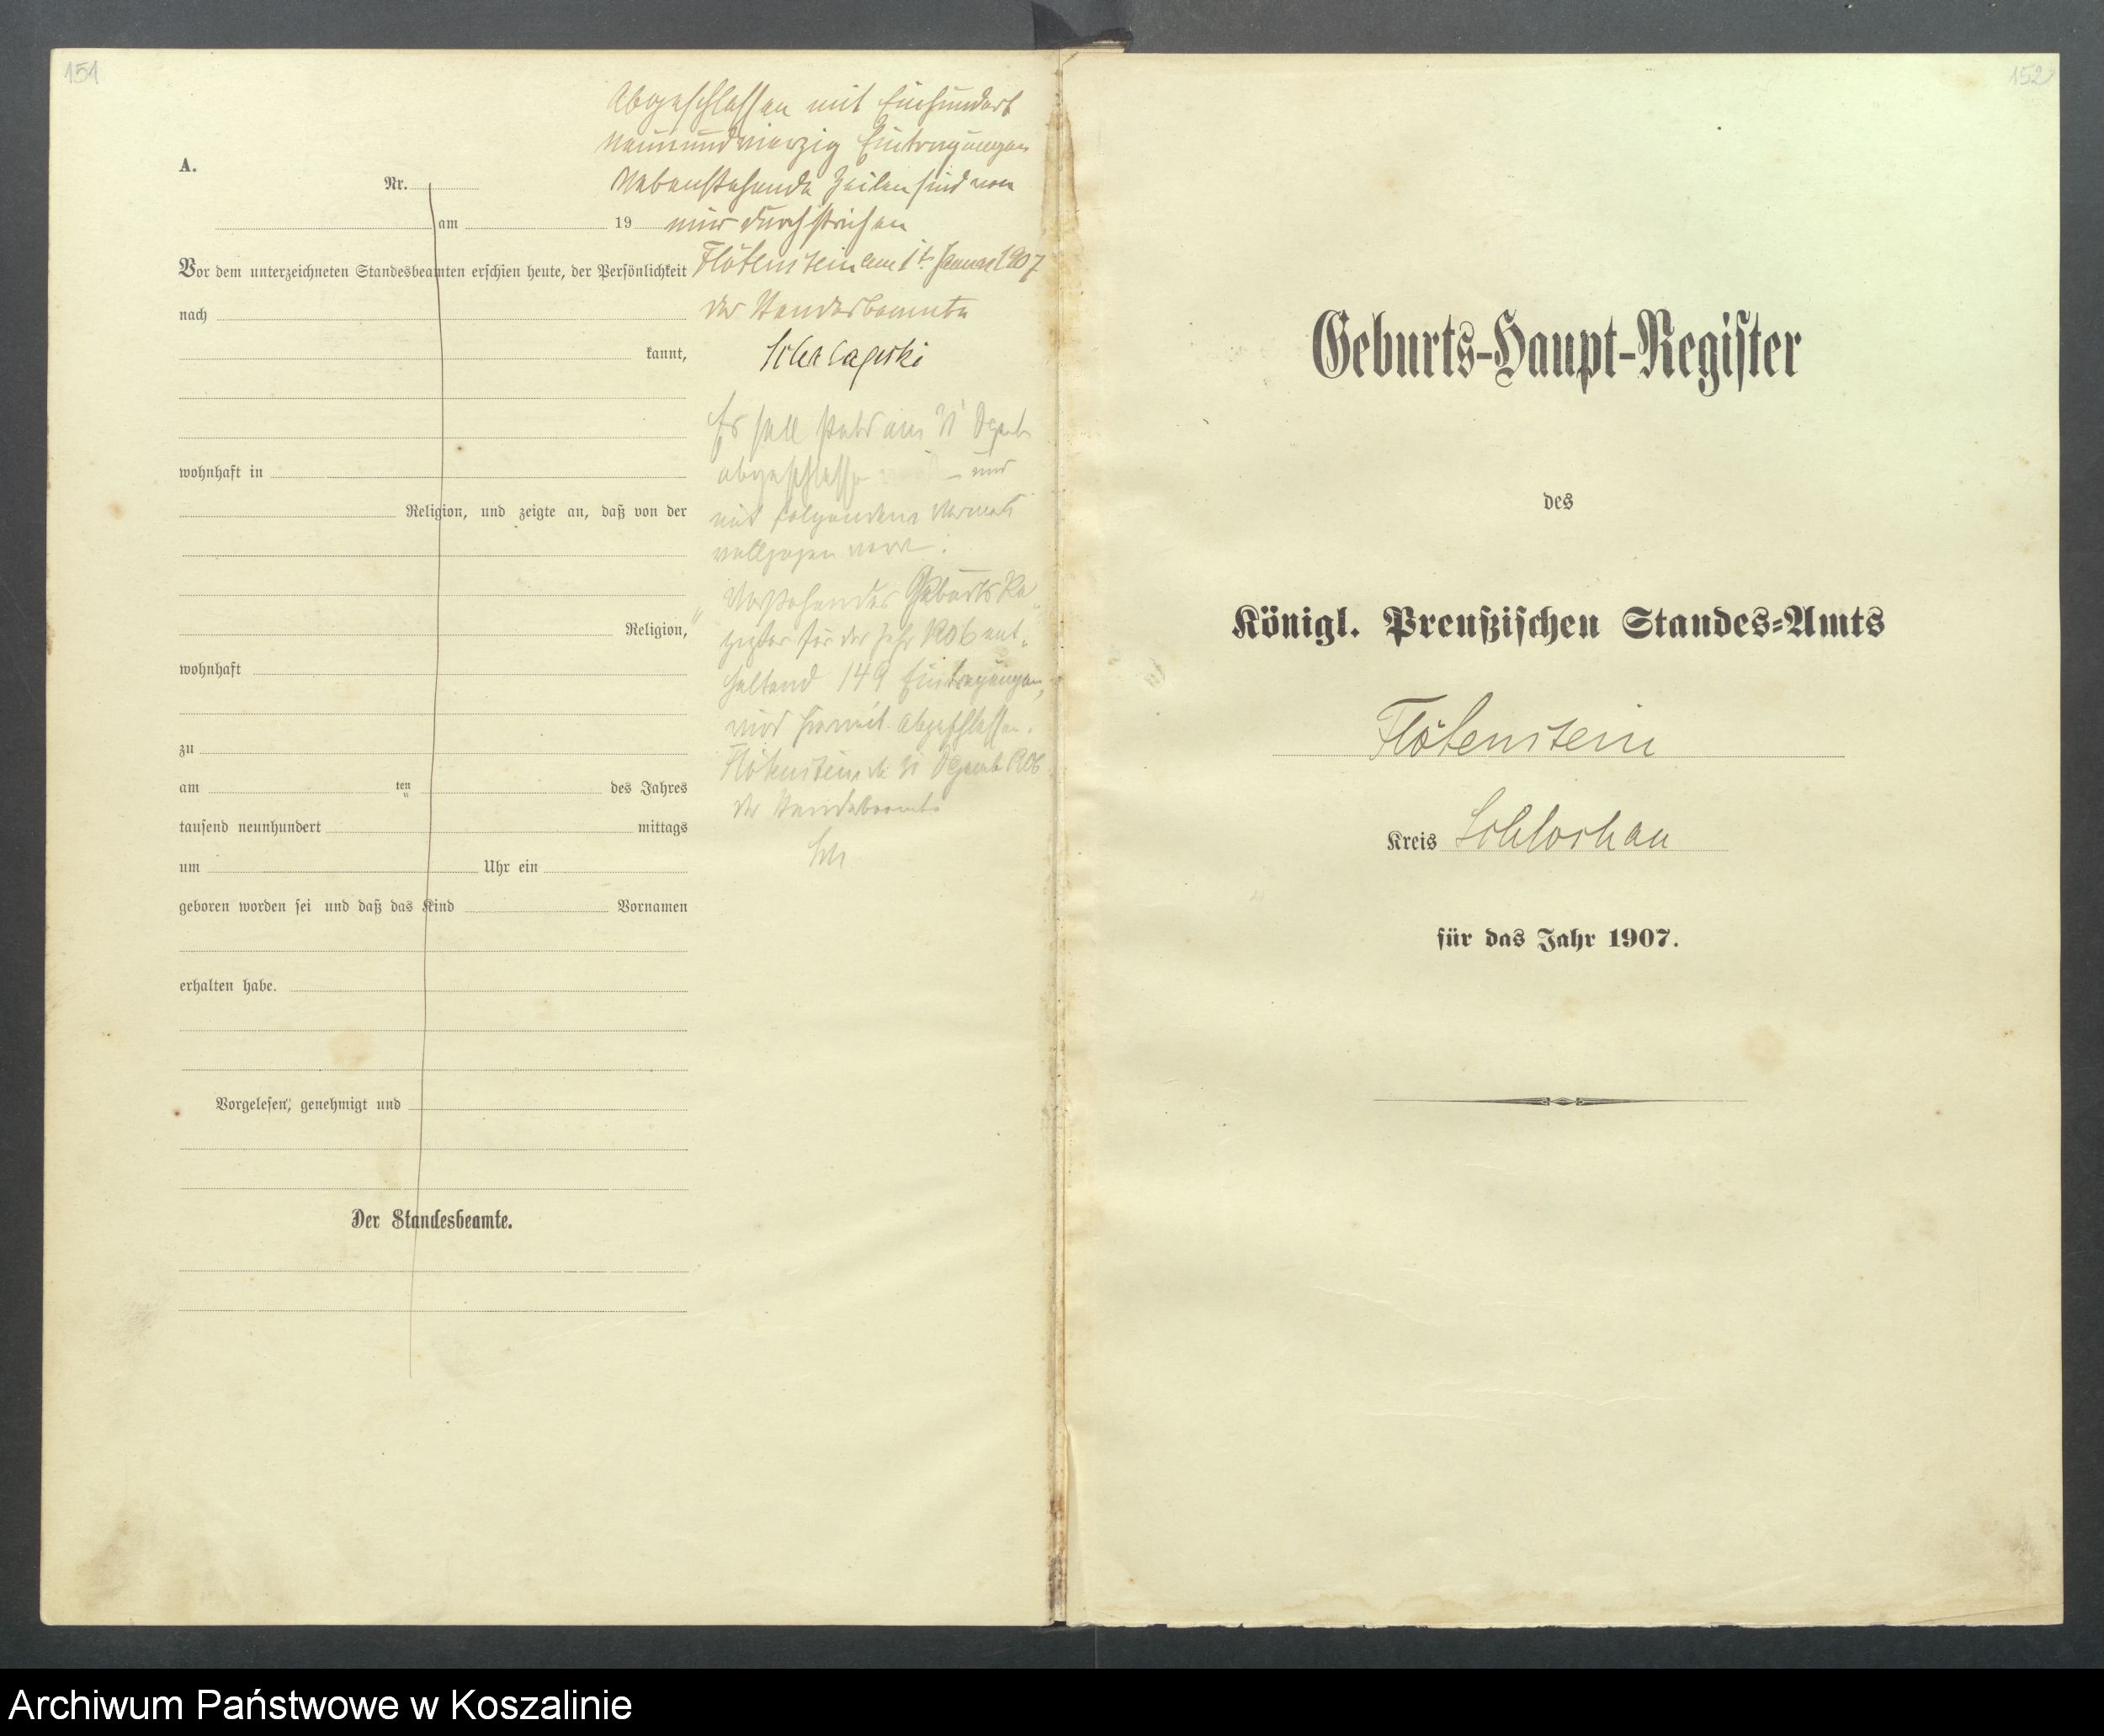 151
Abgeschlossen mit Einhundert
neunundvierzig Eintragungen
A.
Nebenstehende Zeilen sind von
Nr.
mir durchstrichen
am 19
Flötenstein am 1t Januar 1907
Vor dem unterzeichneten Standesbeamten erschien heute, der Persönlichkeit
der Standesbeamte
nach
kannt,
Es soll stets am 31 Dezemb
abgeschlossen und
wohnhaft in
mit folgendem Vermerk
Religion, und zeigte an, daß von der
vollzogen
„Vorstehendes Geburts Re„
gister für das Jahr 1906 ent„
Religion,
haltend 149 Eintragungen,
wohnhaft
wird hiermit abgeschlossen.
Flötenstein d 31 Dezemb 1906
zu
der Standesbeamte
am ten des Jahres
tausend neunhundert mittags
um Uhr ein
geboren worden sei und daß das Kind Vornamen
erhalten habe.
Vorgelesen, genehmigt und
Der Standesbeamte.
152
Geburts-Haupt-Register
des
Königl. Preußischen Standes-Amts
Flötenstein
Kreis Schlochau
für das Jahr 1907.
Archiwum Państwowe w Koszalinie